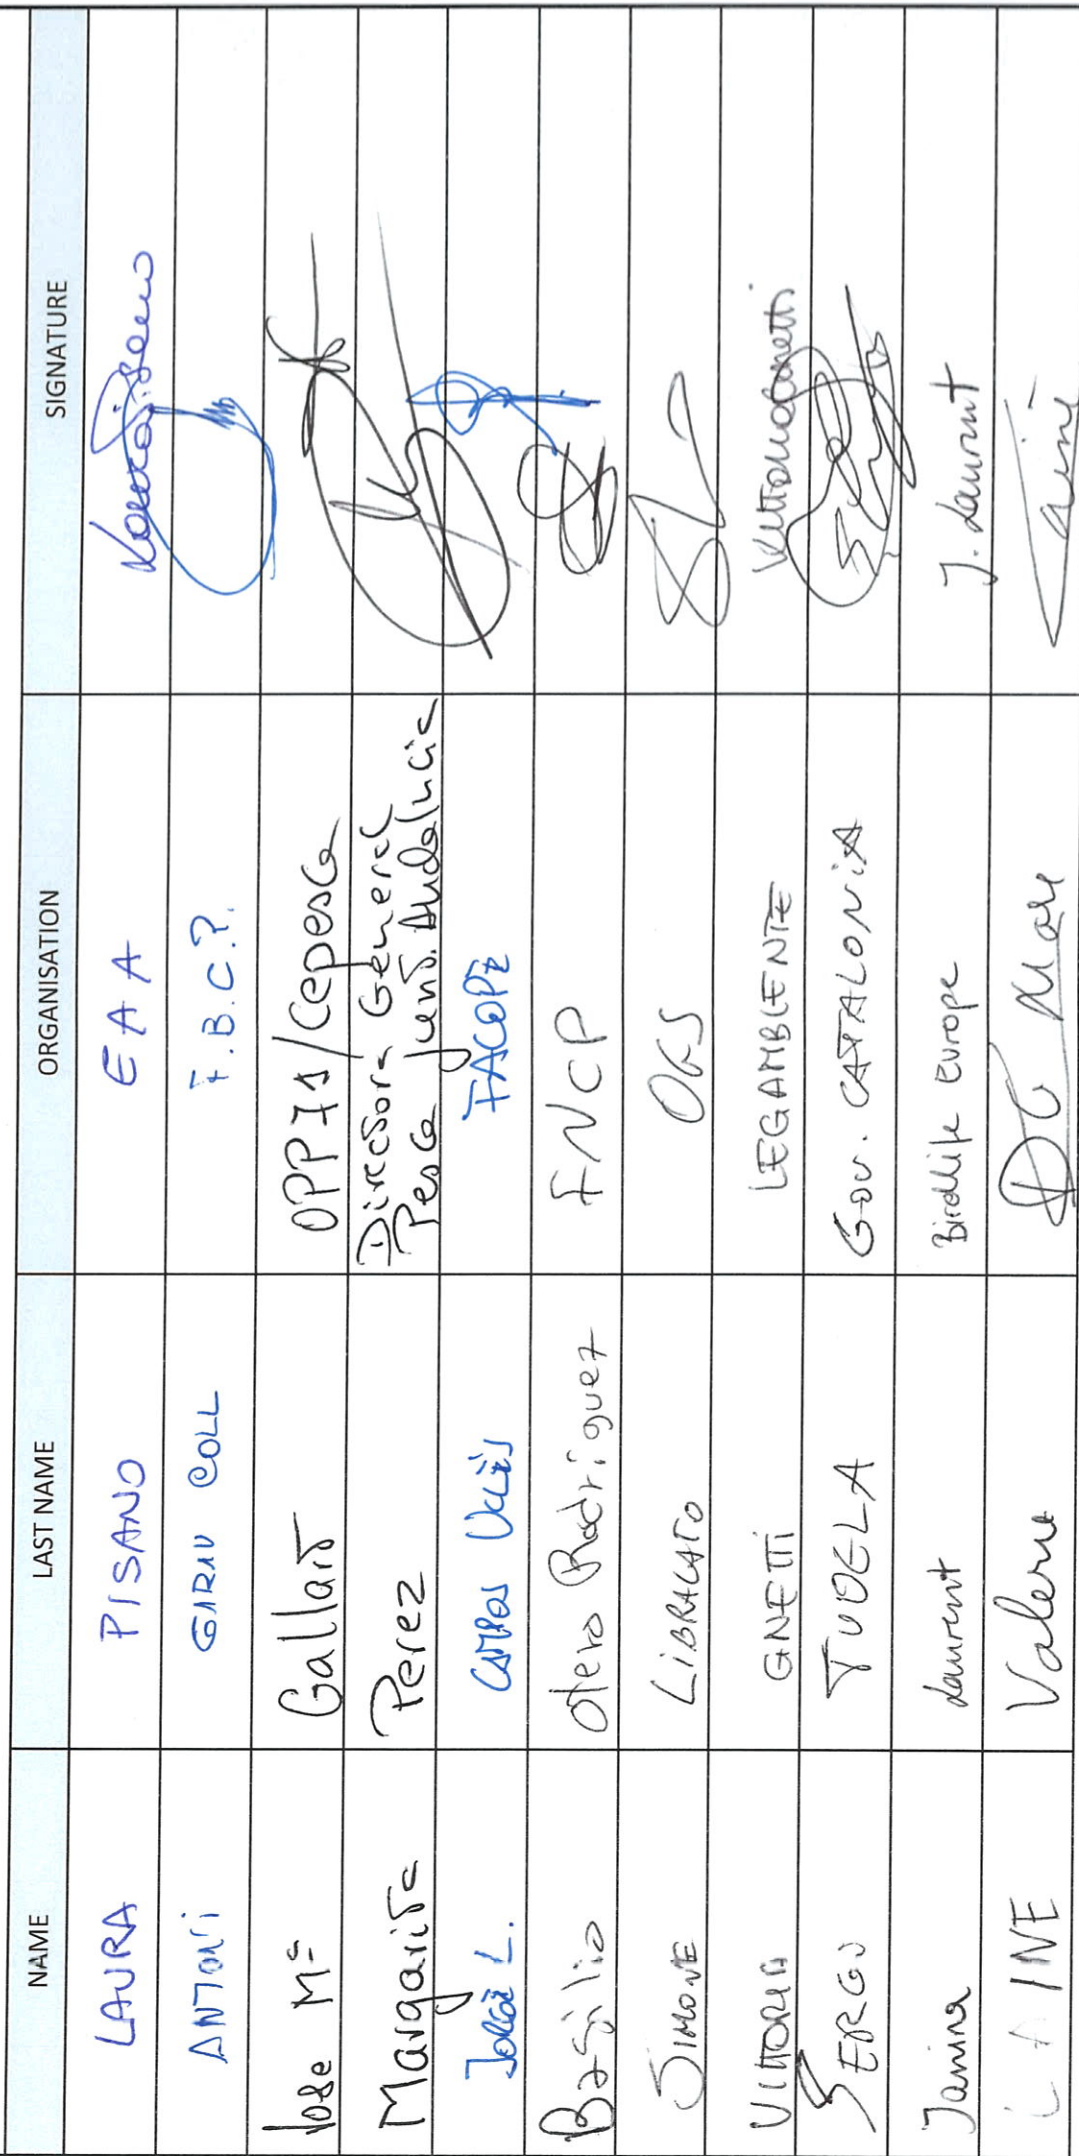 NAME LAST NAME ORGANISATION SIGNATURE
LAURA PISANO EAA
ANTONI GARAU COLL F.B.C.P.
Jose Mª Gallart OPP71/Cepesca
Margarita Perez Directora General
Pesca Junta Andalucia
Campos FACOPE
Basilio Otero Rodriguez FNCP
SIMONE LIBRALATO OGS
VITTORIA GNETTI LEGAMBIENTE
SERGI TUDELA Gov. CATALONIA
Janina Laurent Birdlife Europe J. Laurent
LAINE Valerie DG Mare Lainé